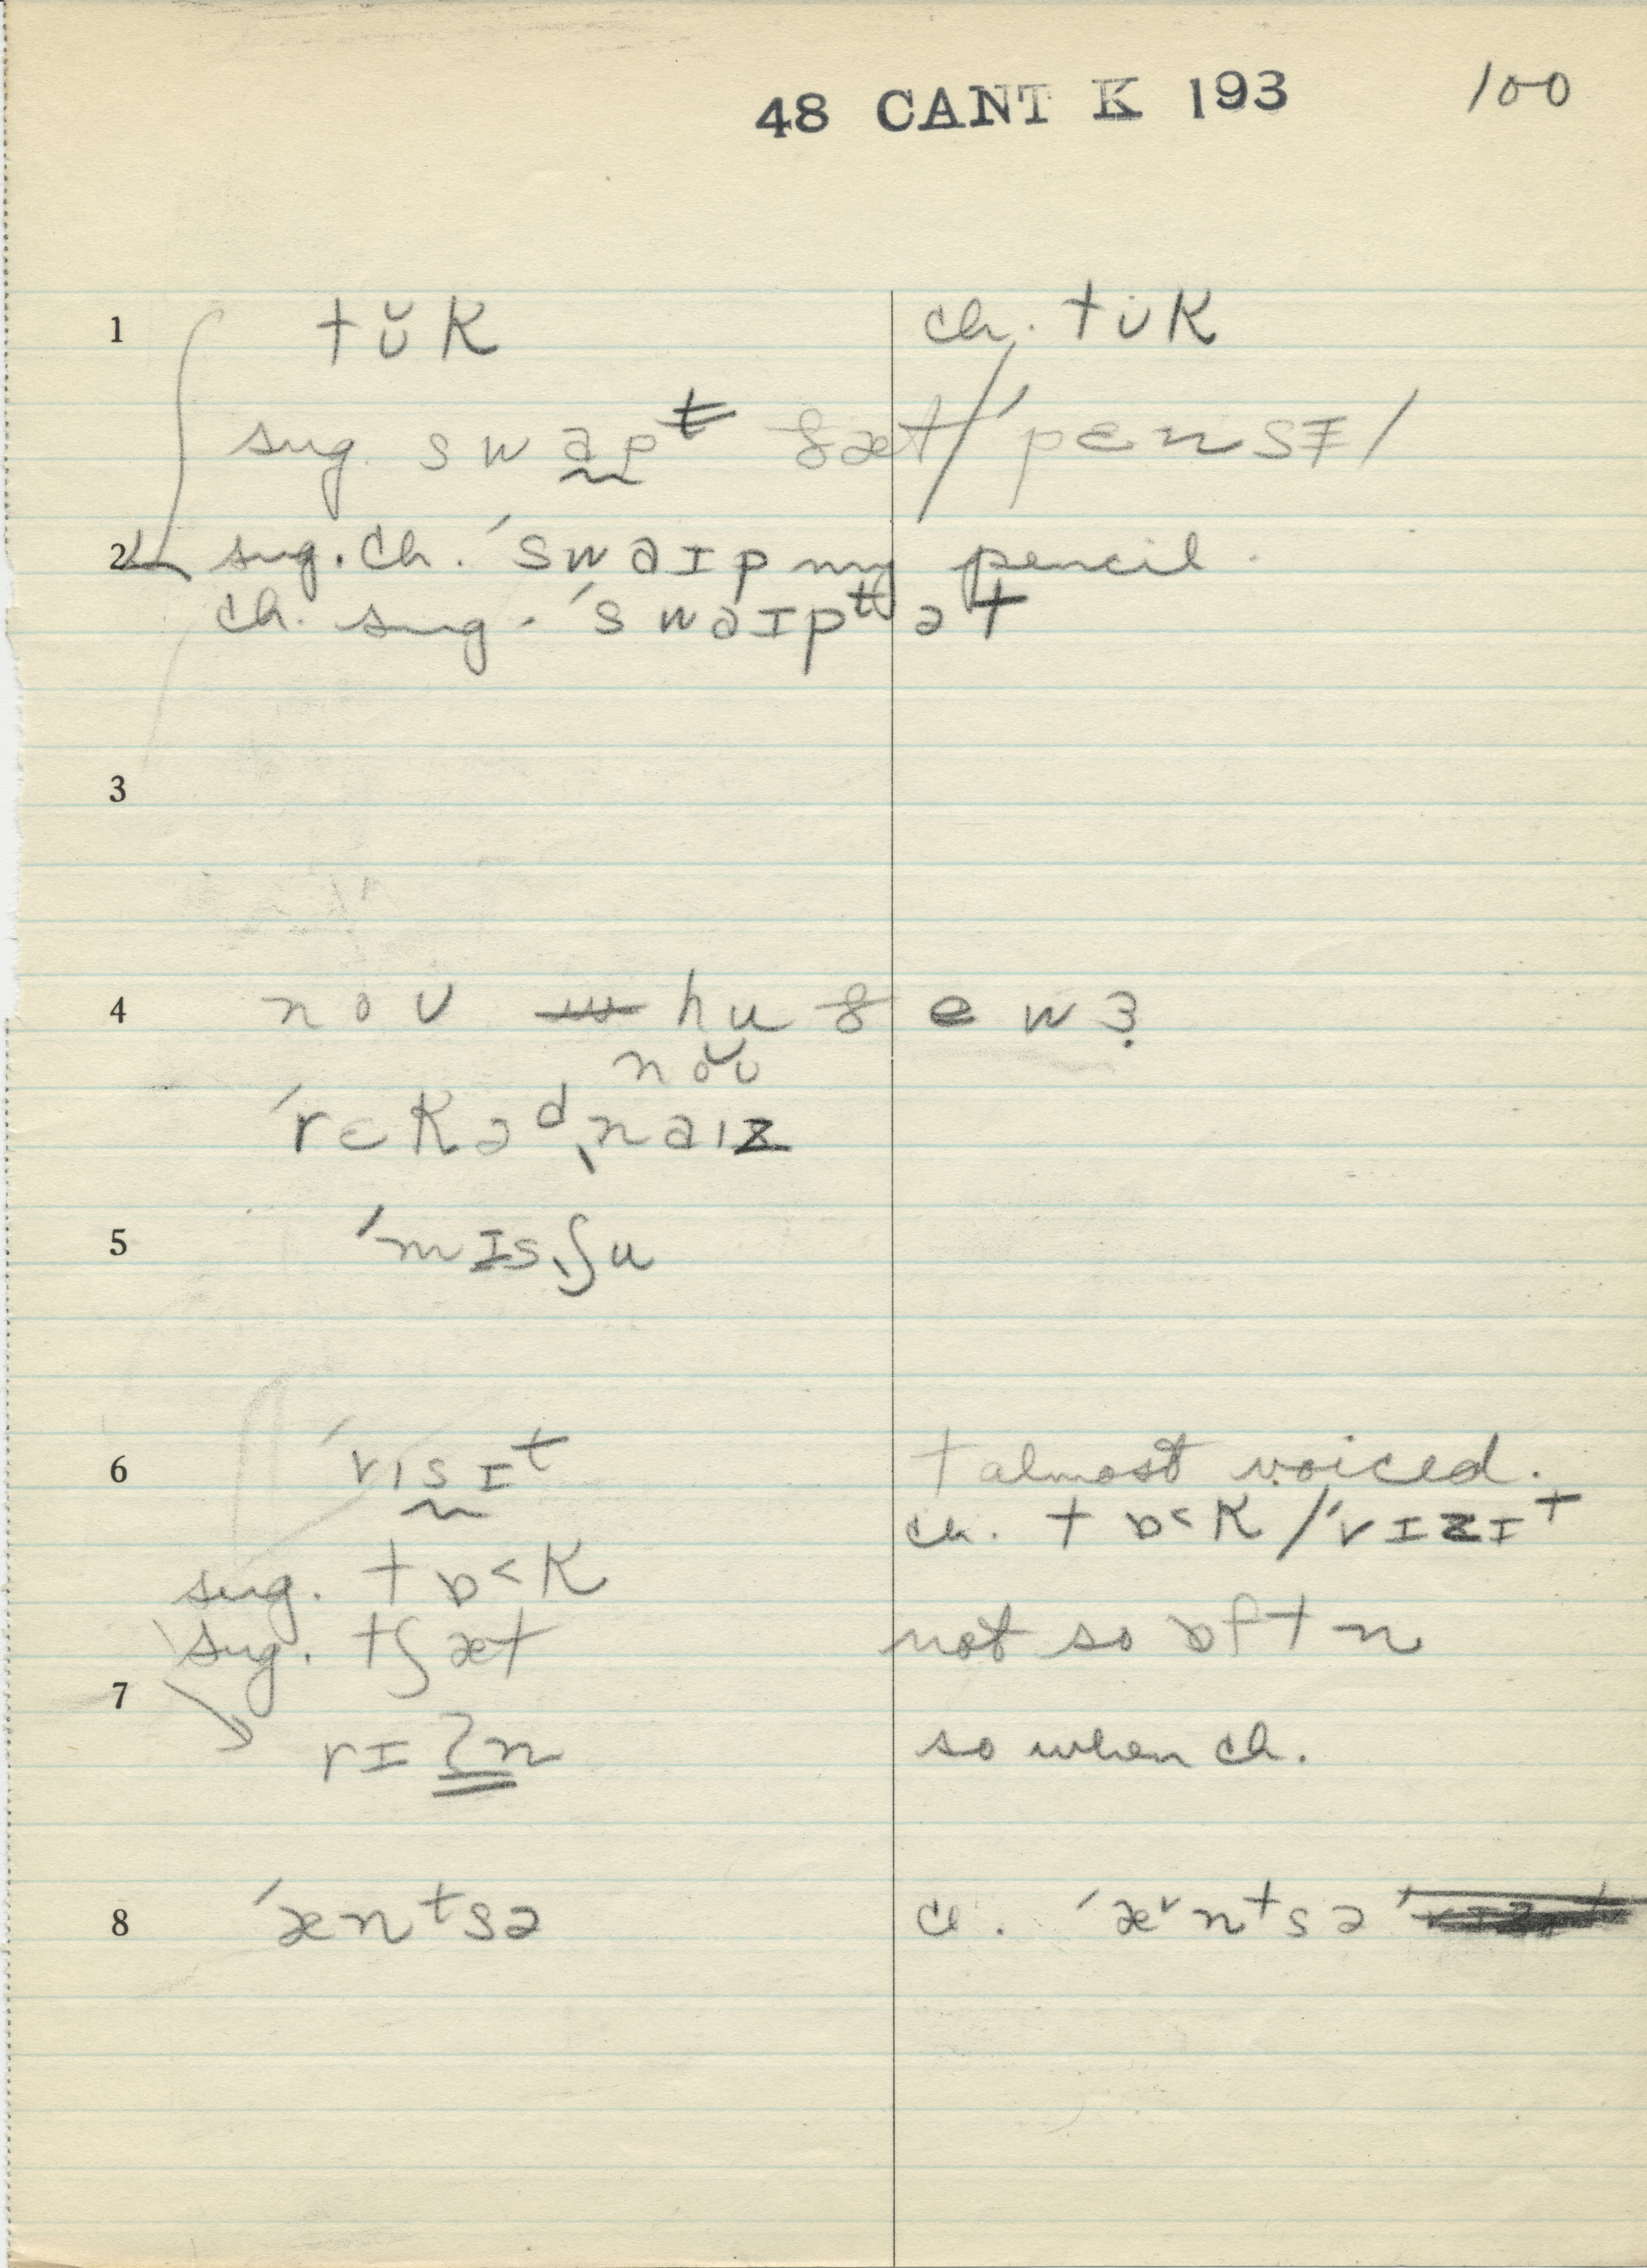 48 CANT K 193 100
1 tʊ̆k ch. tʊk
sug. swap ðæt / ˈpɛnsɪ /
2 sug. ch. ˈswaɪp my pencil.
ch. sug. ˈswaɪp ət
3
4 noʊ hu ðe wɜ
noʊ̆
ˈrɛkəᵈˌnaɪz
5 ˈmɪsˌʃu
6 ˈvɪsɪᵗ t almost voiced.
ch. tɒ˂k / ˈvɪzɪᵗ
sug. tɒ˂k
sug. tʃæt not so ɒftn
7 rɪʔn so when ch.
8 ˈænᵗsə ch. ˈæ˅nᵗsə